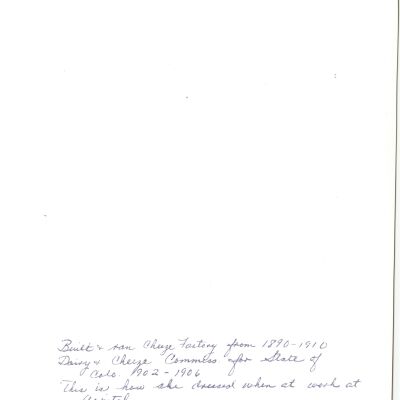 Built & ran Cheeze Factory from 1890-1910
Dairy & Cheeze Commiss. for State of
Colo. 1902-1906
This is how she dressed when at work at
Capitol